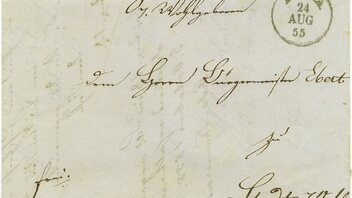 24
AUG
55
Sr. Wohlgeboren
dem Herrn Bürgermeister Ebert
zu
frei.